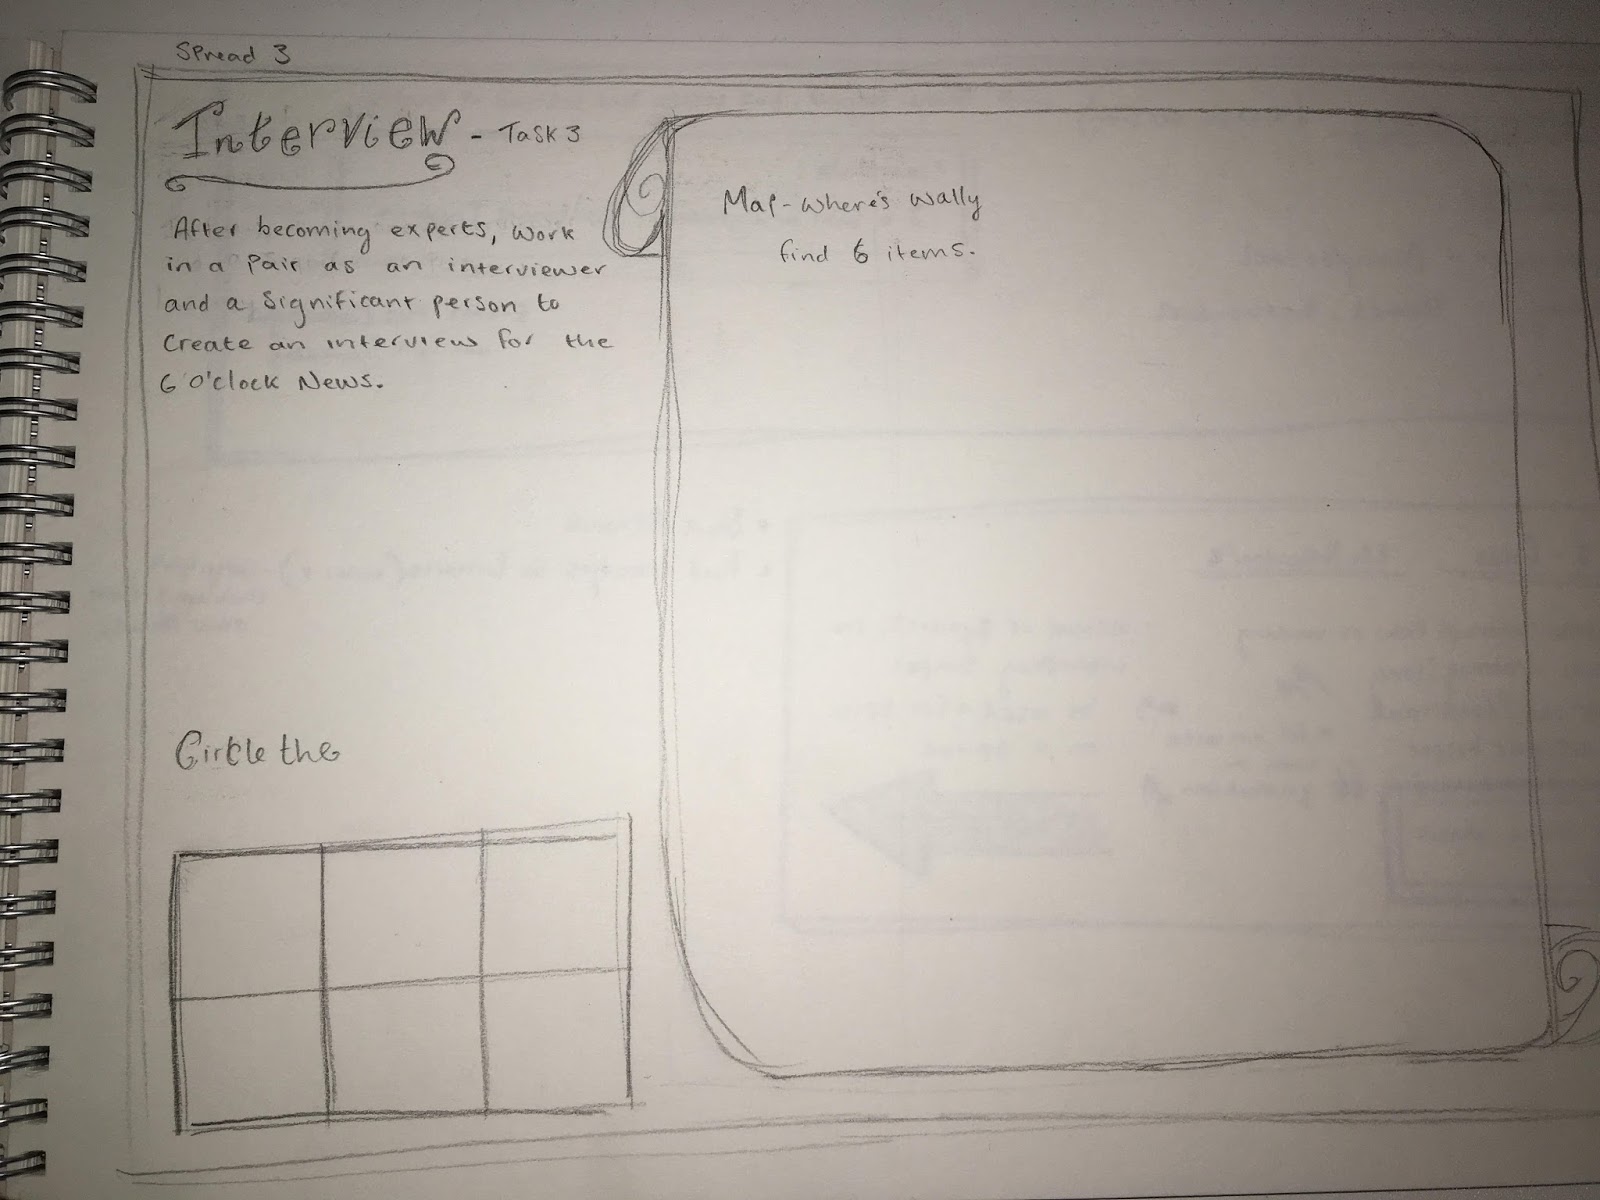 Spread 3
Interview - Task 3
After becoming experts, work
in a Pair as an interviewer
and a significant person to
Create an interview for the
6 O'clock News.
Map - Where's Wally
find 6 items.
Circle the